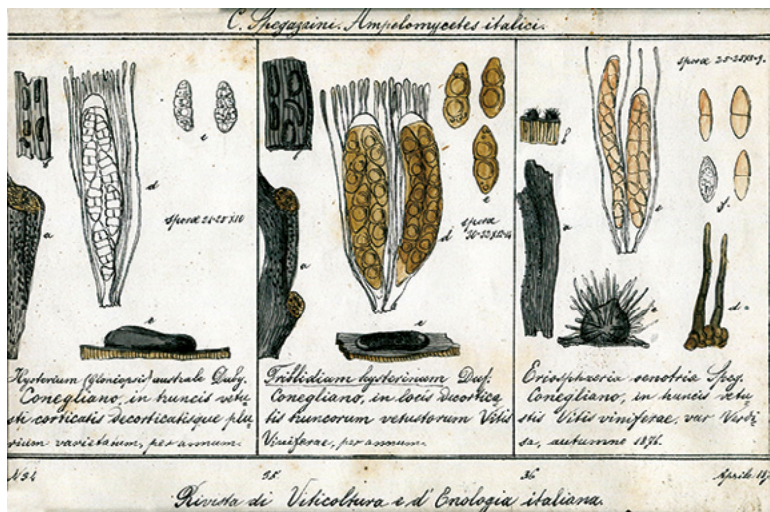 C. Spegazzini. Ampelomycetes italici.
f
a
d
e
Sporæ 21-25×10
c
f
a
d
e
sporæ
30-32×12-14
c
f
a
e
sporæ 25-28×8-9.
f.
d
Hysterium (Gloniopsis) australe Duby.
Conegliano, in truncis vetu
sti corticatis decorticatisque plu
rium varietatum, per annum.
Triblidium hysterinum Duf.
Conegliano, in locis decortica
tis truncorum vetustorum Vitis
Viniferae, per annum.
Eriosphaeria oenotria Speg.
Conegliano, in truncis vetu
stis Vitis viniferae, var Verdi
sa, autumno 1876.
N 34
35
36
Aprile 187
Rivista di Viticoltura e d'Enologia italiana.